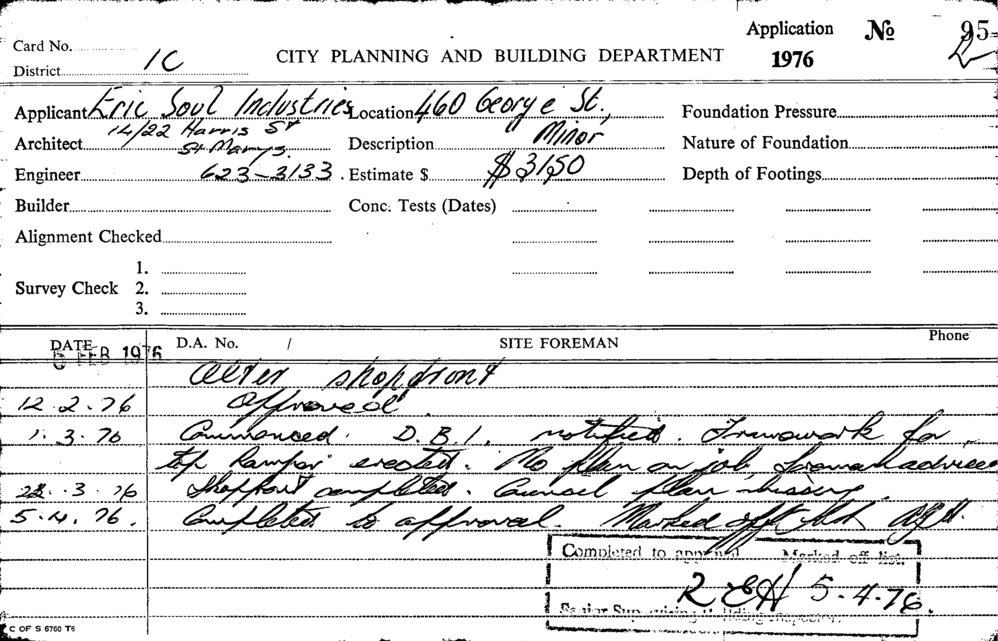 Application No 95
Card No. 1976
District 1C CITY PLANNING AND BUILDING DEPARTMENT
Applicant Eric Soul Industries Location 460 George St., Foundation Pressure
14/22 Harris St
Architect St Marys. Description Minor Nature of Foundation
Engineer 623-3133. Estimate $ $3150 Depth of Footings
Builder Conc. Tests (Dates)
Alignment Checked
1.
Survey Check 2.
3.
DATE D.A. No. / SITE FOREMAN Phone
FEB 1976
Alter shopfront
12.2.76 Approved.
1.3.76 Commenced. D.B.I. notified. Framework for
top erected. No plan on job, foreman advised
3.76 Shopfront completed. Council plan missing.
5.4.76. Completed to approval. Marked off list
Completed to approval Marked off list.
REH 5.4.76.
Senior Supervising Building Inspector.
C OF S 6760 T6